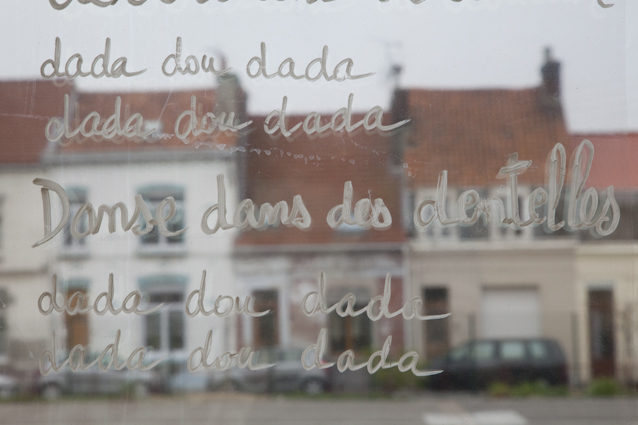 dada dou dada
dada dou dada
Danse dans des dentelles
dada dou dada
dada dou dada